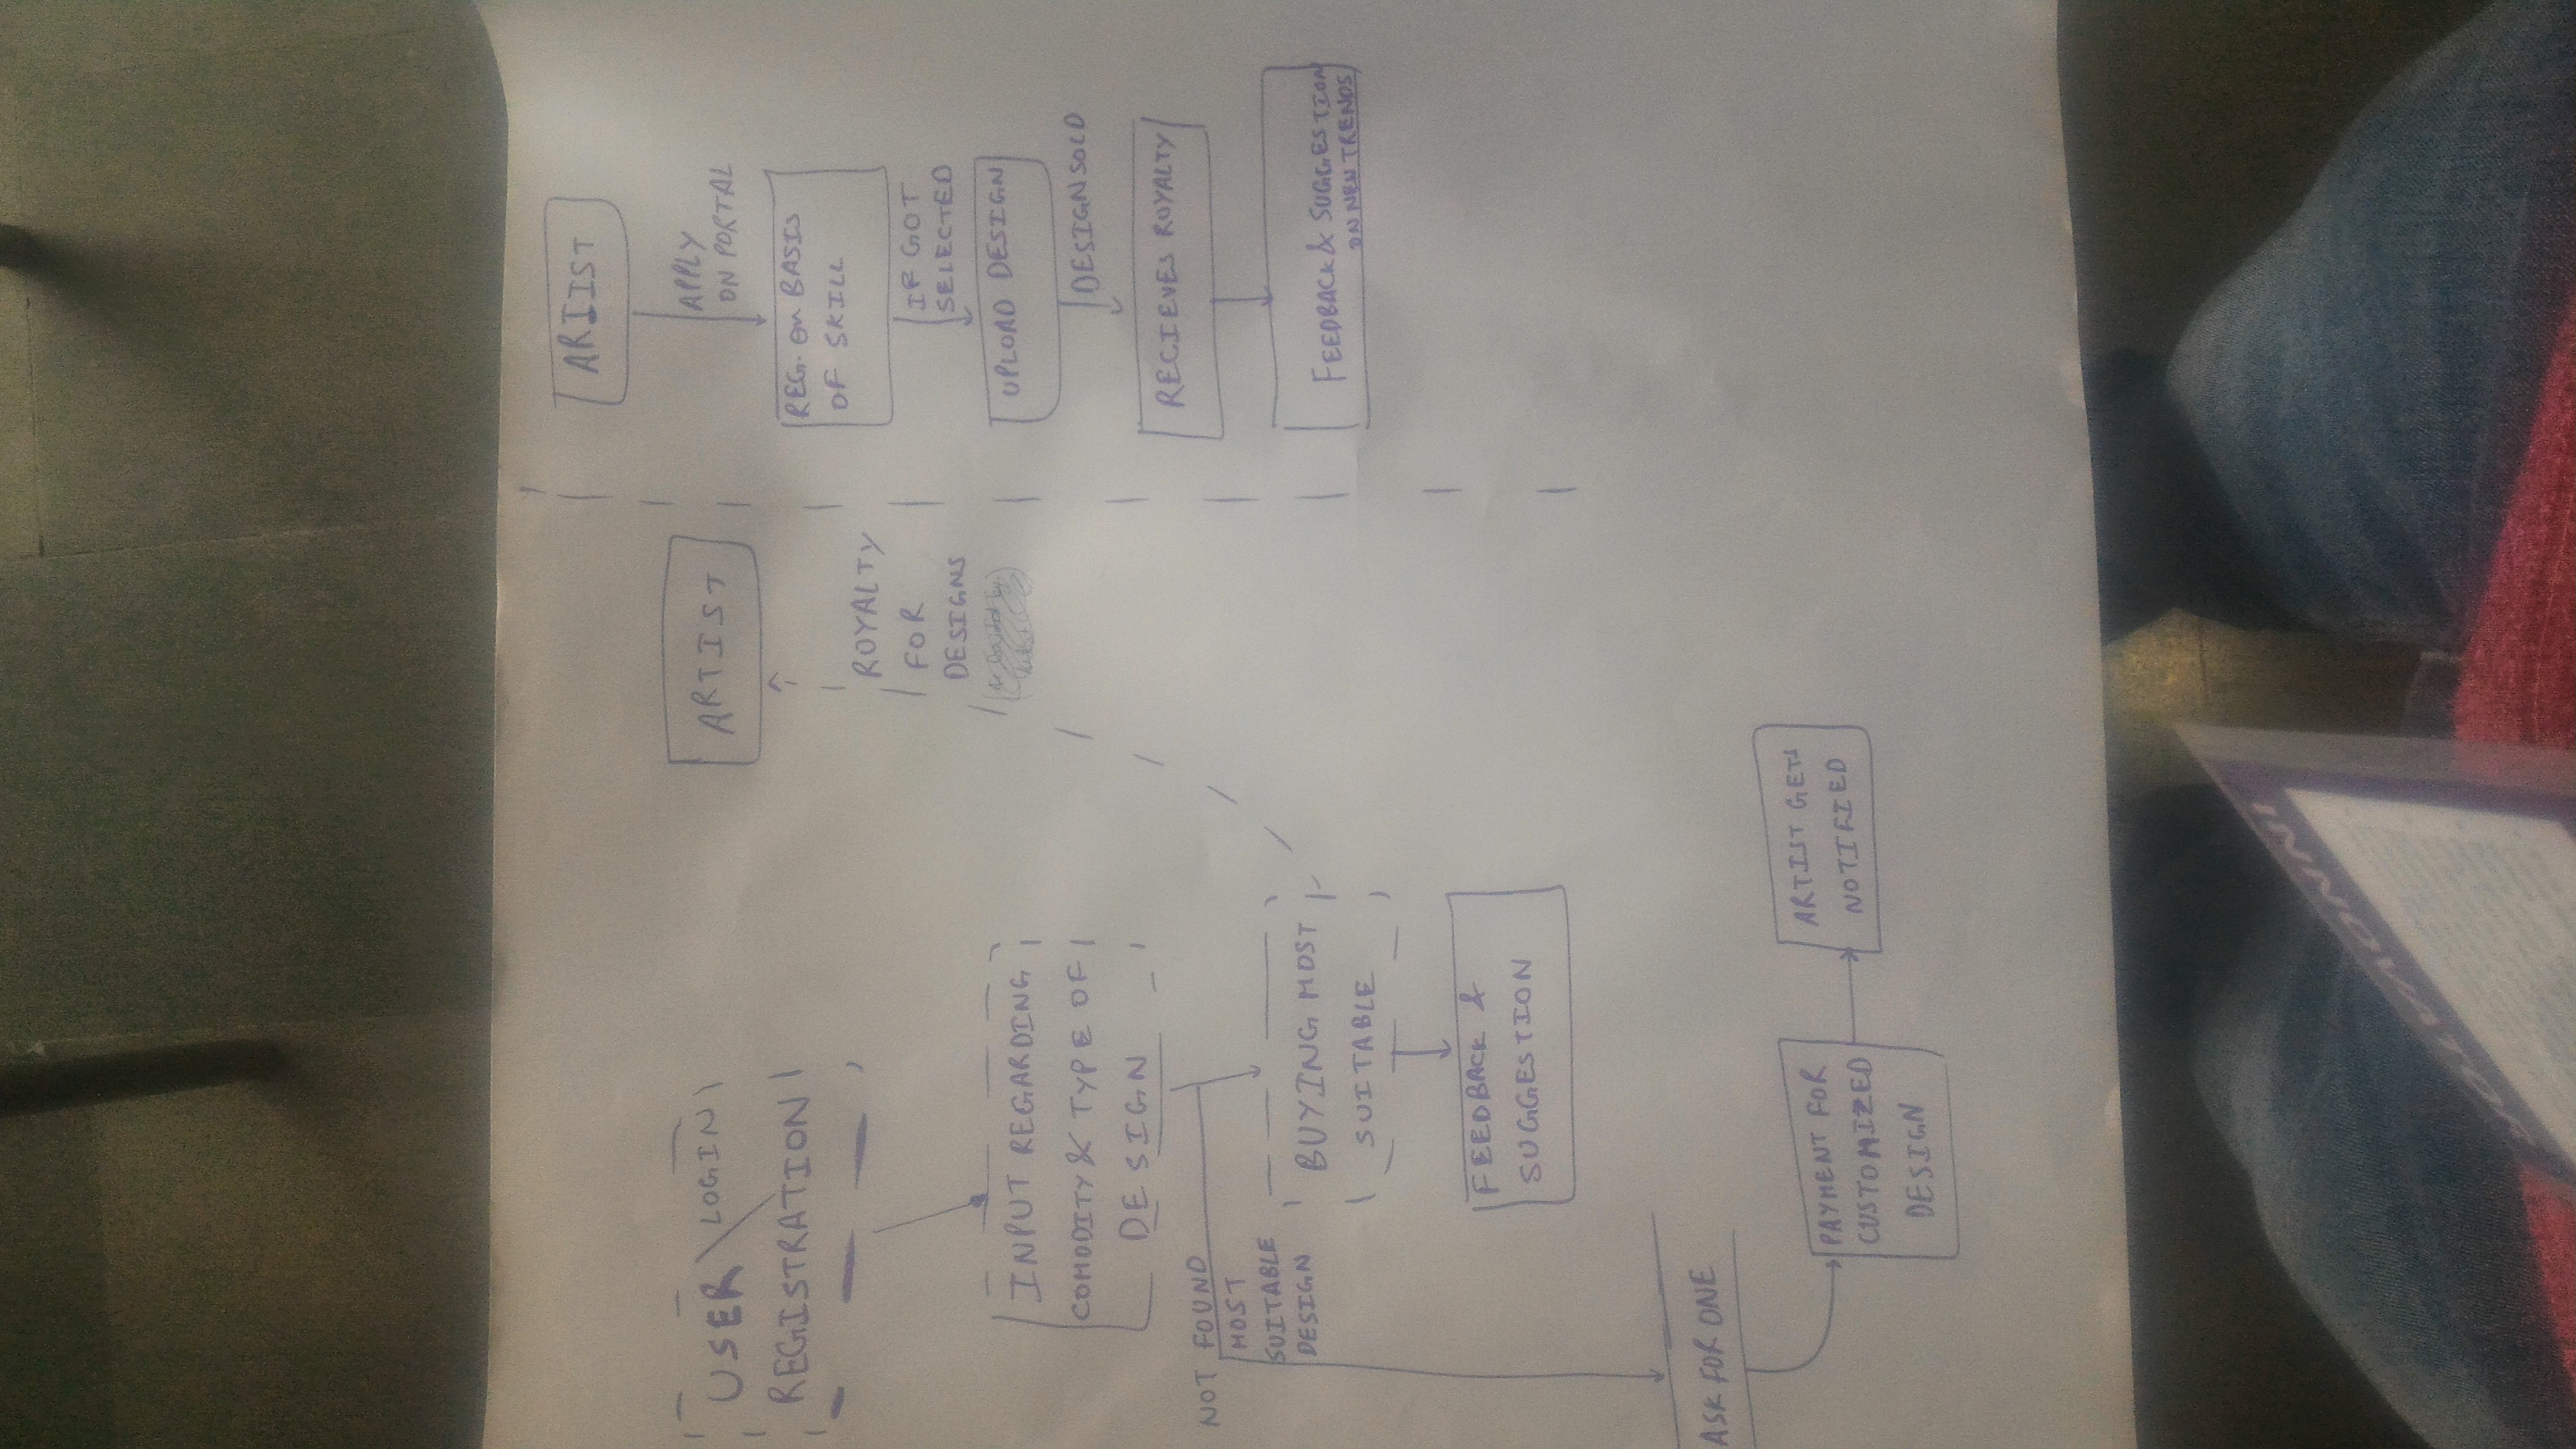 USER / LOGIN
REGISTRATION
INPUT REGARDING
COMODITY & TYPE OF
DESIGN
NOT FOUND
MOST
SUITABLE
DESIGN
BUYING MOST
SUITABLE
FEEDBACK &
SUGGESTION
ASK FOR ONE
PAYMENT FOR
CUSTOMIZED
DESIGN
ARTIST GETS
NOTIFIED
ARTIST
ROYALTY
FOR
DESIGNS
ARTIST
APPLY
ON PORTAL
REG. ON BASIS
OF SKILL
IF GOT
SELECTED
UPLOAD DESIGN
DESIGN SOLD
RECIEVES ROYALTY
FEEDBACK & SUGGESTION
ON NEW TRENDS
INNOVATOR